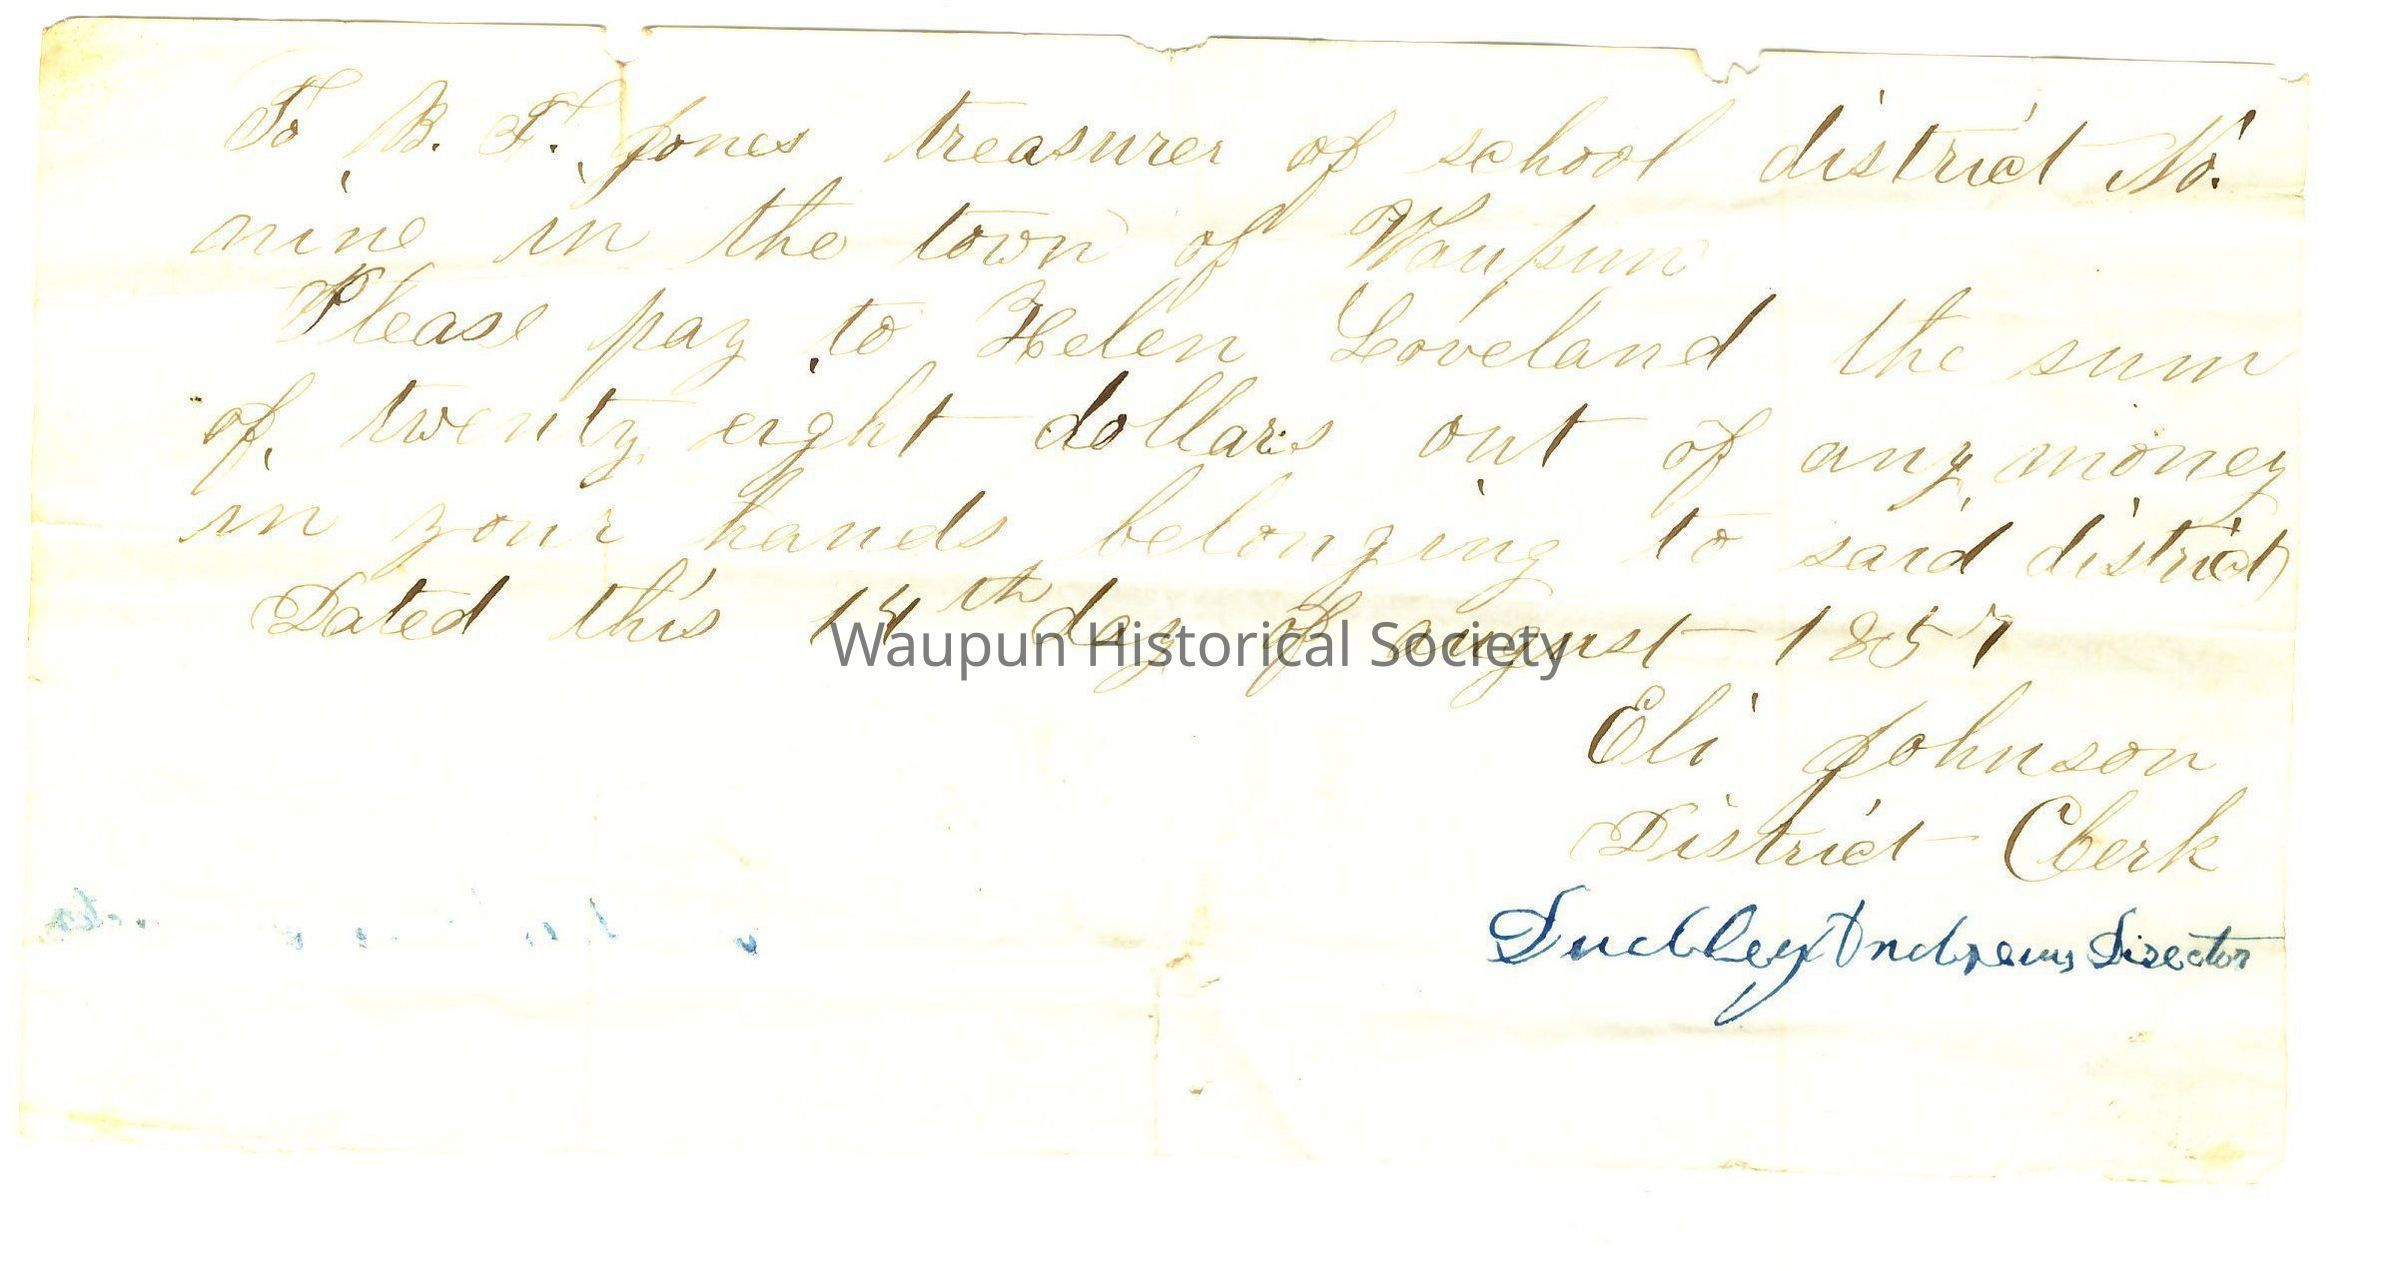 To B. F. Jones treasurer of school district No.
nine in the town of Waupun
Please pay to Helen Loveland the sum
of twenty eight dollars out of any money
in your hands belonging to said district
Dated this 14th day of august 1857
Waupun Historical Society
Eli Johnson
District Clerk
Dudley Andrews Director